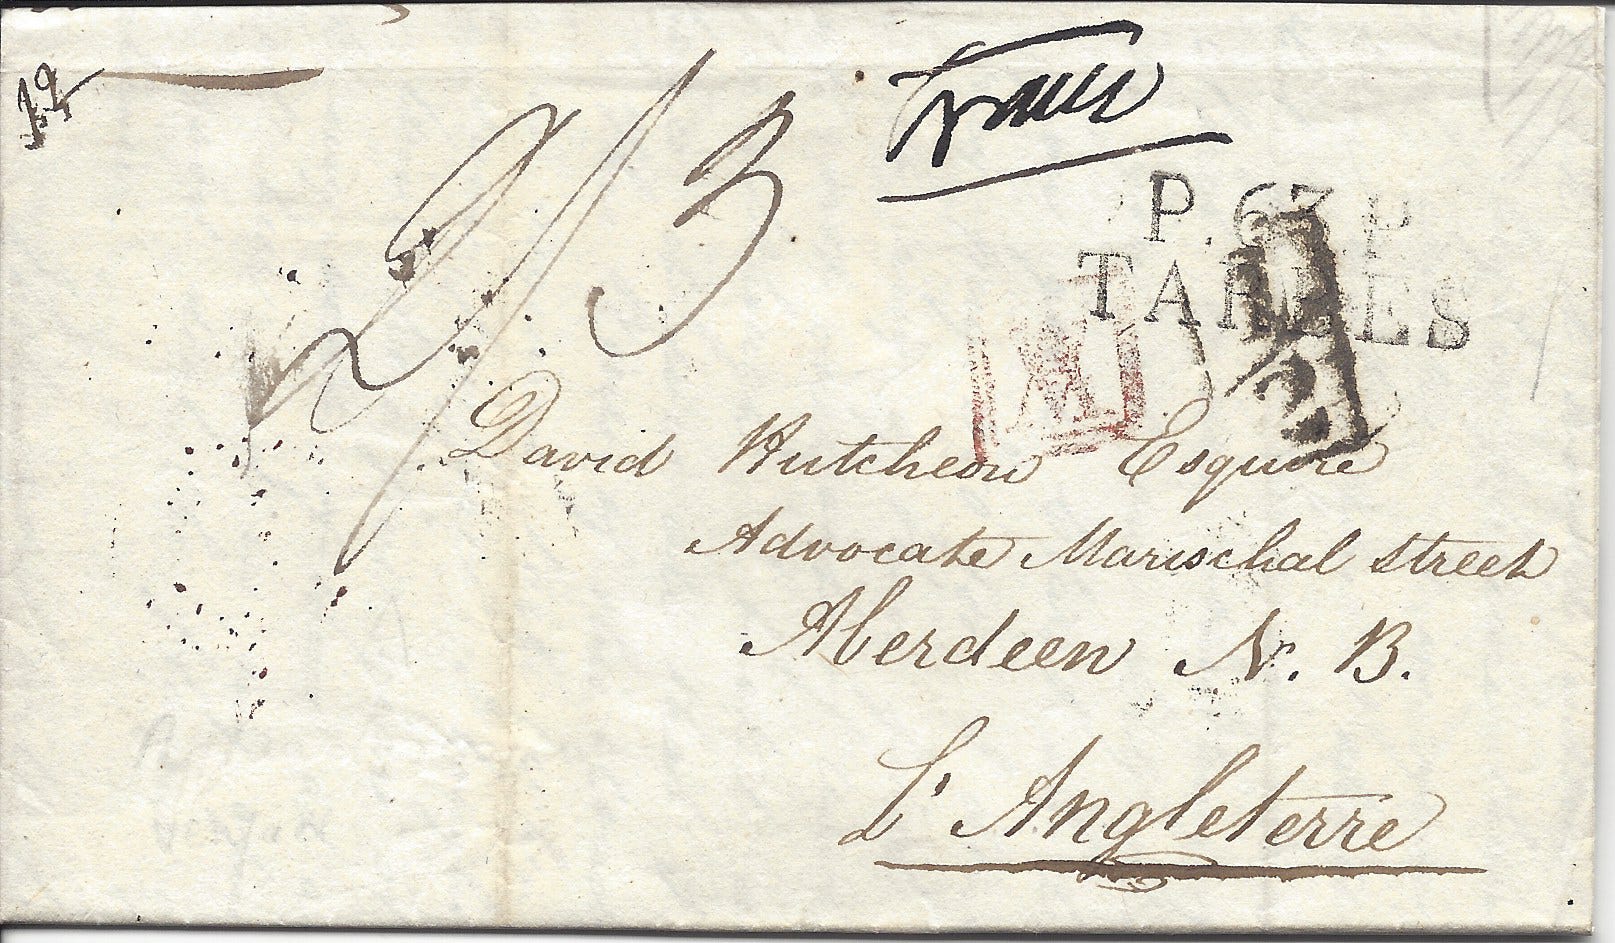 2/3
P. 63. P
TARBES
1/2
David Hutcheon Esquire
Advocate Marischal Street
Aberdeen N. B.
L'Angleterre